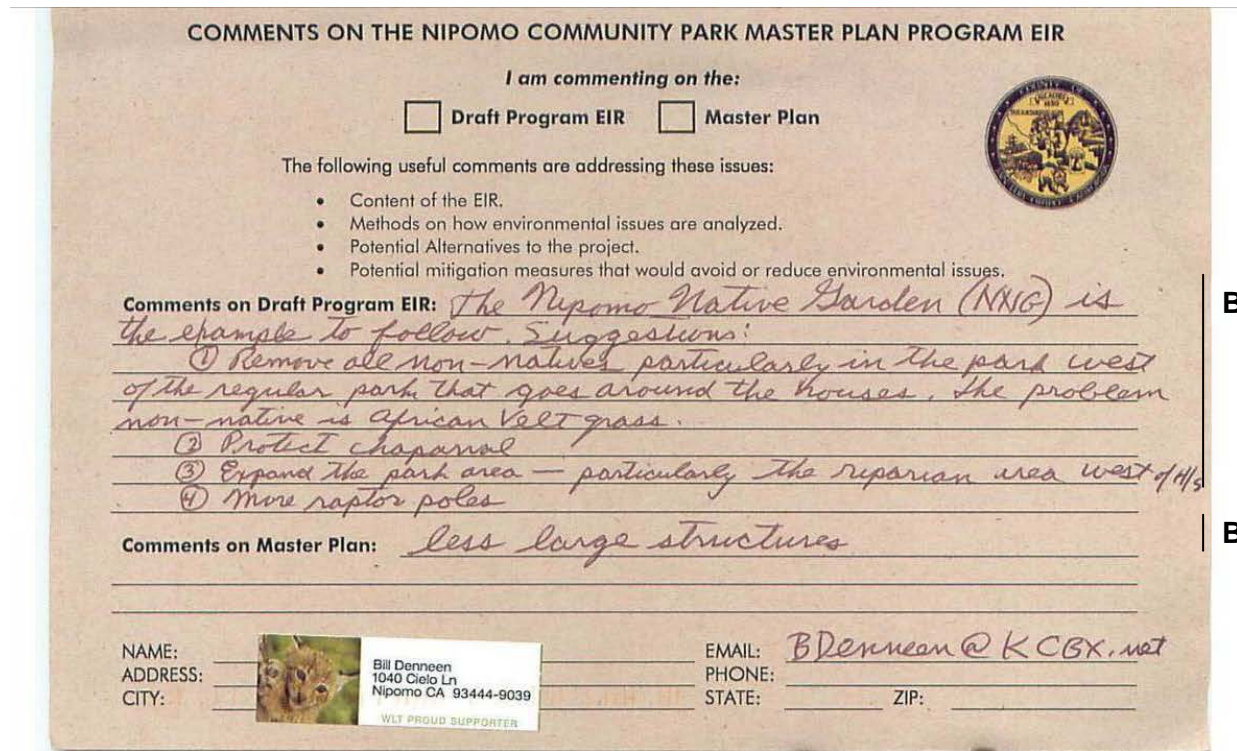 COMMENTS ON THE NIPOMO COMMUNITY PARK MASTER PLAN PROGRAM EIR
I am commenting on the:
Draft Program EIR Master Plan
The following useful comments are addressing these issues:
• Content of the EIR.
• Methods on how environmental issues are analyzed.
• Potential Alternatives to the project.
• Potential mitigation measures that would avoid or reduce environmental issues.
Comments on Draft Program EIR: The Nipomo Native Garden (NNG) is
the example to follow. Suggestions:
① Remove all non-natives particularly in the park west
of the regular park that goes around the houses. The problem
non-native is African Velt grass.
② Protect chaparral
③ Expand the park area — particularly the riparian area west of H/S
④ More raptor poles
B
Comments on Master Plan: less large structures
B
NAME:
ADDRESS:
CITY:
Bill Denneen
1040 Cielo Ln
Nipomo CA 93444-9039
WLT PROUD SUPPORTER
EMAIL: BDenneen@KCBX.net
PHONE:
STATE: ZIP: